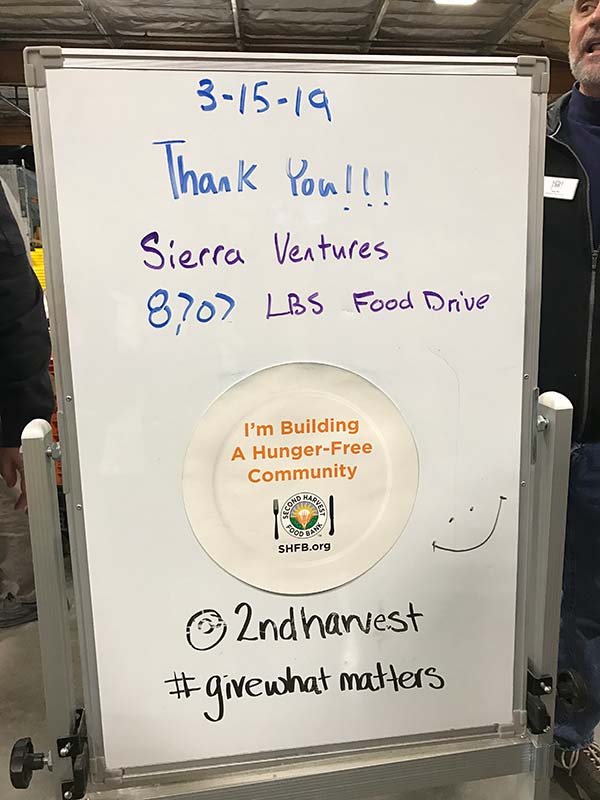 3-15-19
Thank You!!!
Sierra Ventures
8707 LBS Food Drive
I'm Building
A Hunger-Free
Community
SECOND HARVEST
FOOD BANK
SHFB.org
@2ndharvest
#givewhatmatters